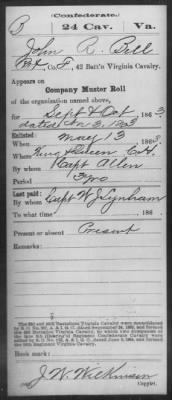 (Confederate.)
B 24 Cav. Va.
John R. Bell
Pvt Co. F, 42 Batt'n Virginia Cavalry.
Appears on
Company Muster Roll
of the organization named above,
for Sept & Oct 1863
dated Jan 3, 1863
Enlisted:
When May 13 1863
Where King & Queen C.H.
By whom Capt Allen
Period 3 yrs
Last paid:
By whom Capt W J Lynham
To what time 186
Present or absent Present
Remarks:
Book mark:
J. W. Wilkinson
Copyist.